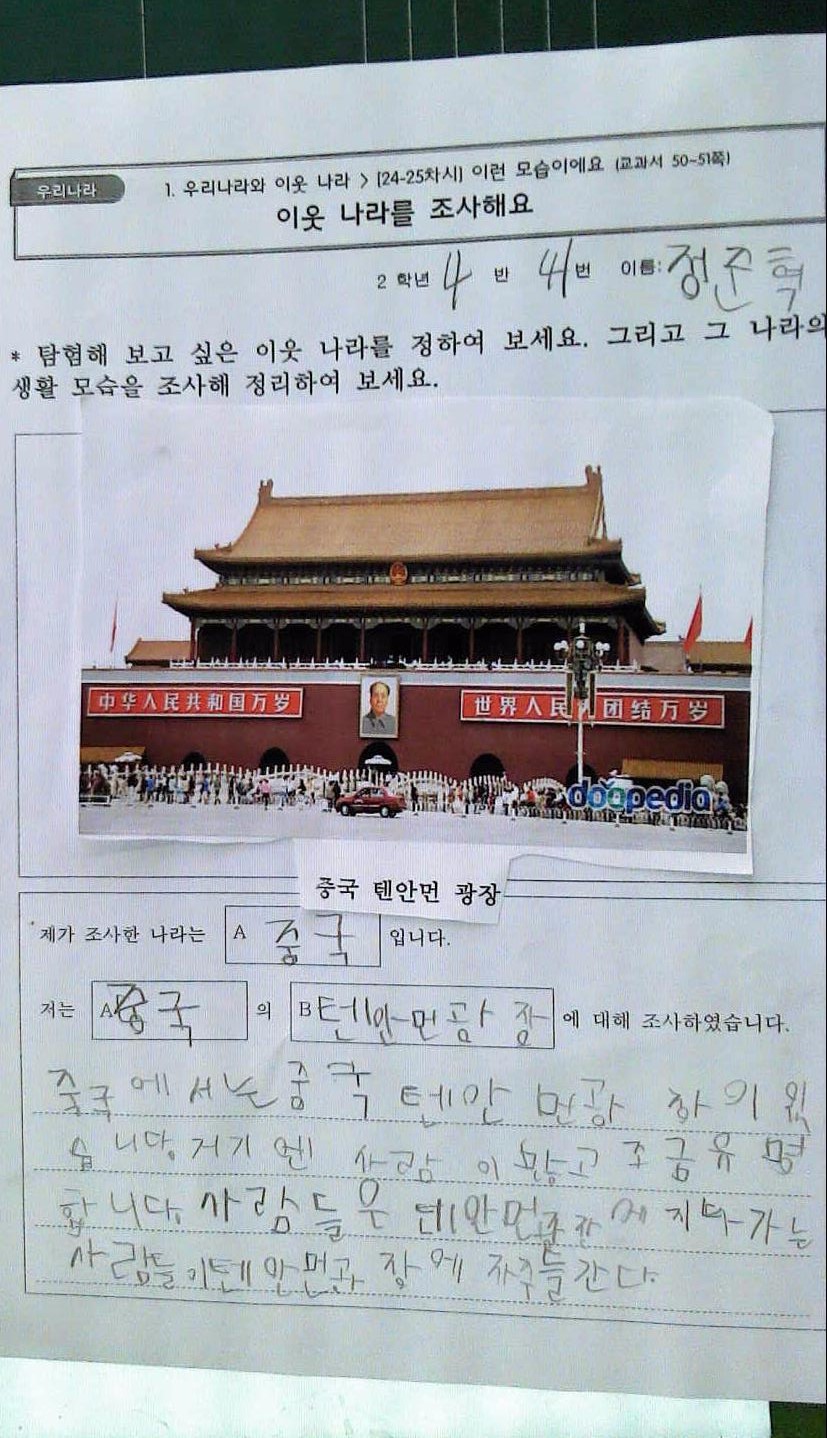 우리나라
1. 우리나라와 이웃 나라 > [24-25차시] 이런 모습이에요 (교과서 50~51쪽)
이웃 나라를 조사해요
2 학년 4 반 41번 이름: 정준혁
* 탐험해 보고 싶은 이웃 나라를 정하여 보세요. 그리고 그 나라의
생활 모습을 조사해 정리하여 보세요.
中华人民共和国万岁
世界人民 团结万岁
doopedia
중국 텐안먼 광장
제가 조사한 나라는 A 중국 입니다.
저는 A 중국 의 B 텐안먼광장 에 대해 조사하였습니다.
중국에서는 중국 텐안먼광장이 있
습니다. 저기엔 사람이 많고 조금유명
합니다. 사람들은 텐안먼 에 지나가는
사람들이텐안먼광장에 자주들간다.